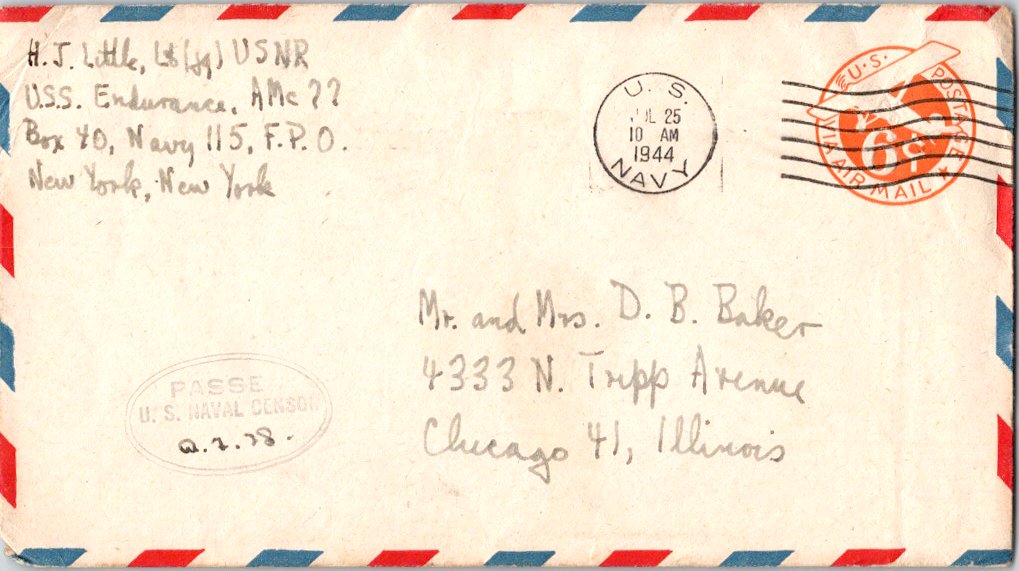 H. J. Little, Lt (jg) USNR
U.S.S. Endurance, AMc 77
Box 40, Navy 115, F.P.O.
New York, New York
U. S.
JUL 25
10 AM
1944
NAVY
U.S. POSTAGE
6¢
VIA AIR MAIL
Mr. and Mrs. D. B. Baker
4333 N. Tripp Avenue
Chicago 41, Illinois
PASSE
U. S. NAVAL CENSOR